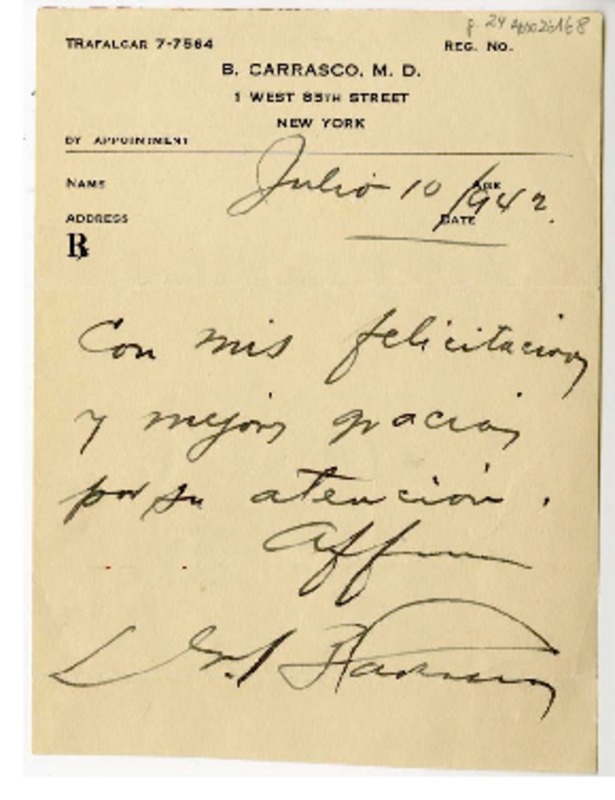 p. 24
TRAFALGAR 7-7564
REG. NO.
B. CARRASCO, M. D.
1 WEST 85TH STREET
NEW YORK
BY APPOINTMENT
NAME
AGE
Julio 10/942.
ADDRESS
DATE
℞
Con mis felicitaciones
y mejores gracias
por su atención.
Affmo